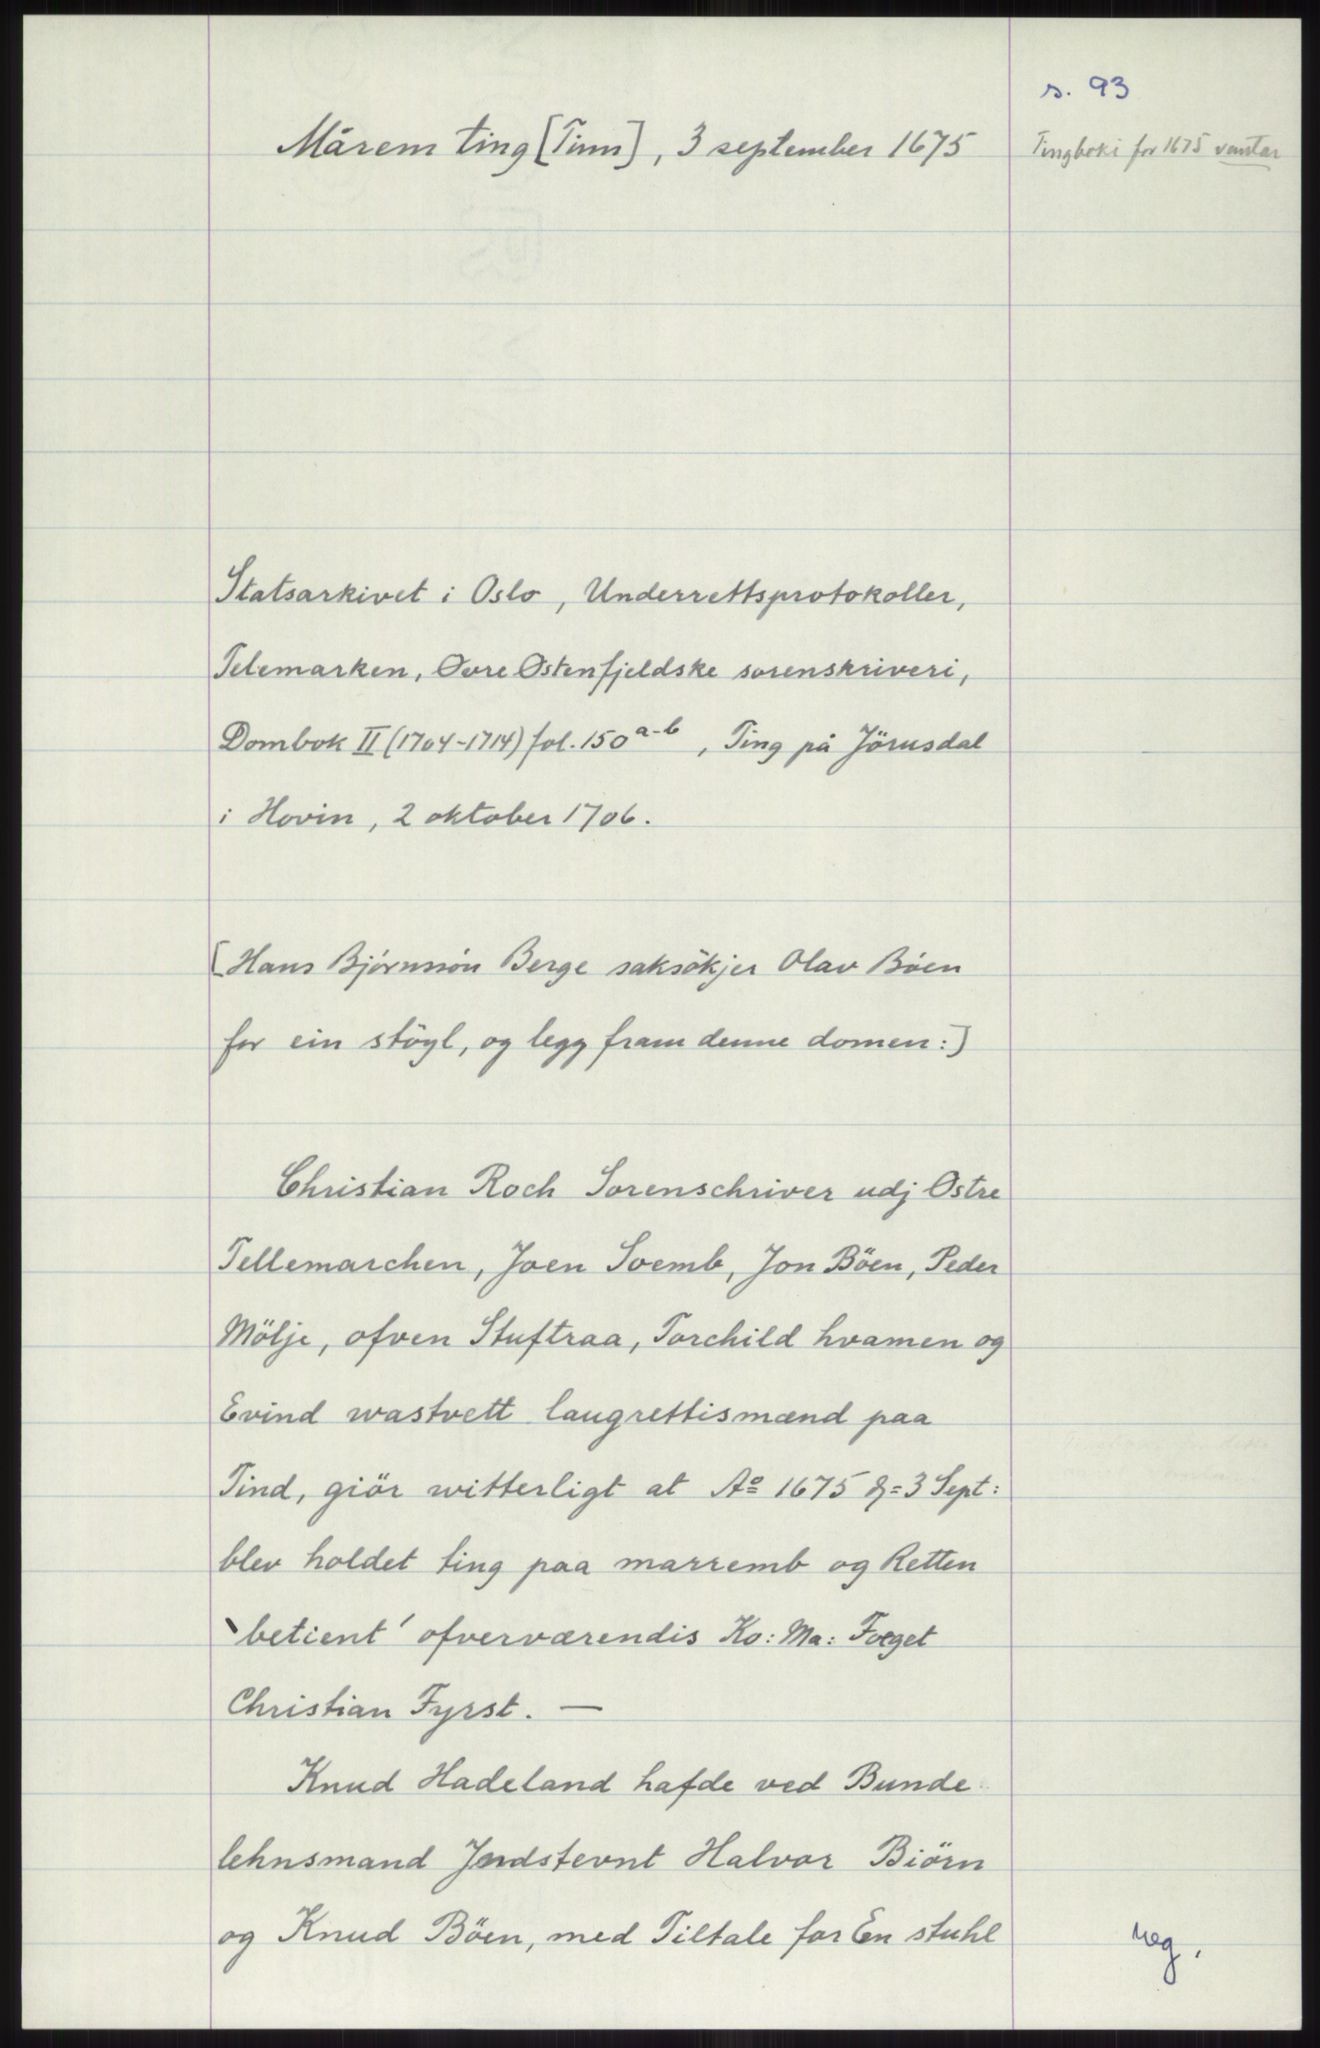 s. 93
Mårem ting [Tinn], 3 september 1675
Tingboki for 1675 vantar
Statsarkivet i Oslo, Underrettsprotokoller,
Telemarken, Øvre Østenfjeldske sorenskriveri,
Dombok II (1704-1714) fol. 150 a-b, Ting på Jörusdal
i Hovin, 2 oktober 1706.
[Hans Björnsön Berge saksökjer Olav Böen
for ein stöyl, og legg fram denne domen:]
Christian Roch Sorenschriver udj Østre
Tellemarchen, Joen Soemb, Jon Böen, Peder
Mölje, ofven Stuftraa, Torchild hvamen og
Evind wastvett laugrettismænd paa
Tind, giör witterligt at Aº 1675 d= 3 Sept:
blev holdet ting paa marremb og Retten
`betient´ ofverværendis Ko: Ma: Foeget
Christian Fyrst. —
Knud Hadeland hafde ved Bunde
lehnsmand Jndstevnt Halvor Biörn
og Knud Böen, med Tiltale for En stuhl
reg.